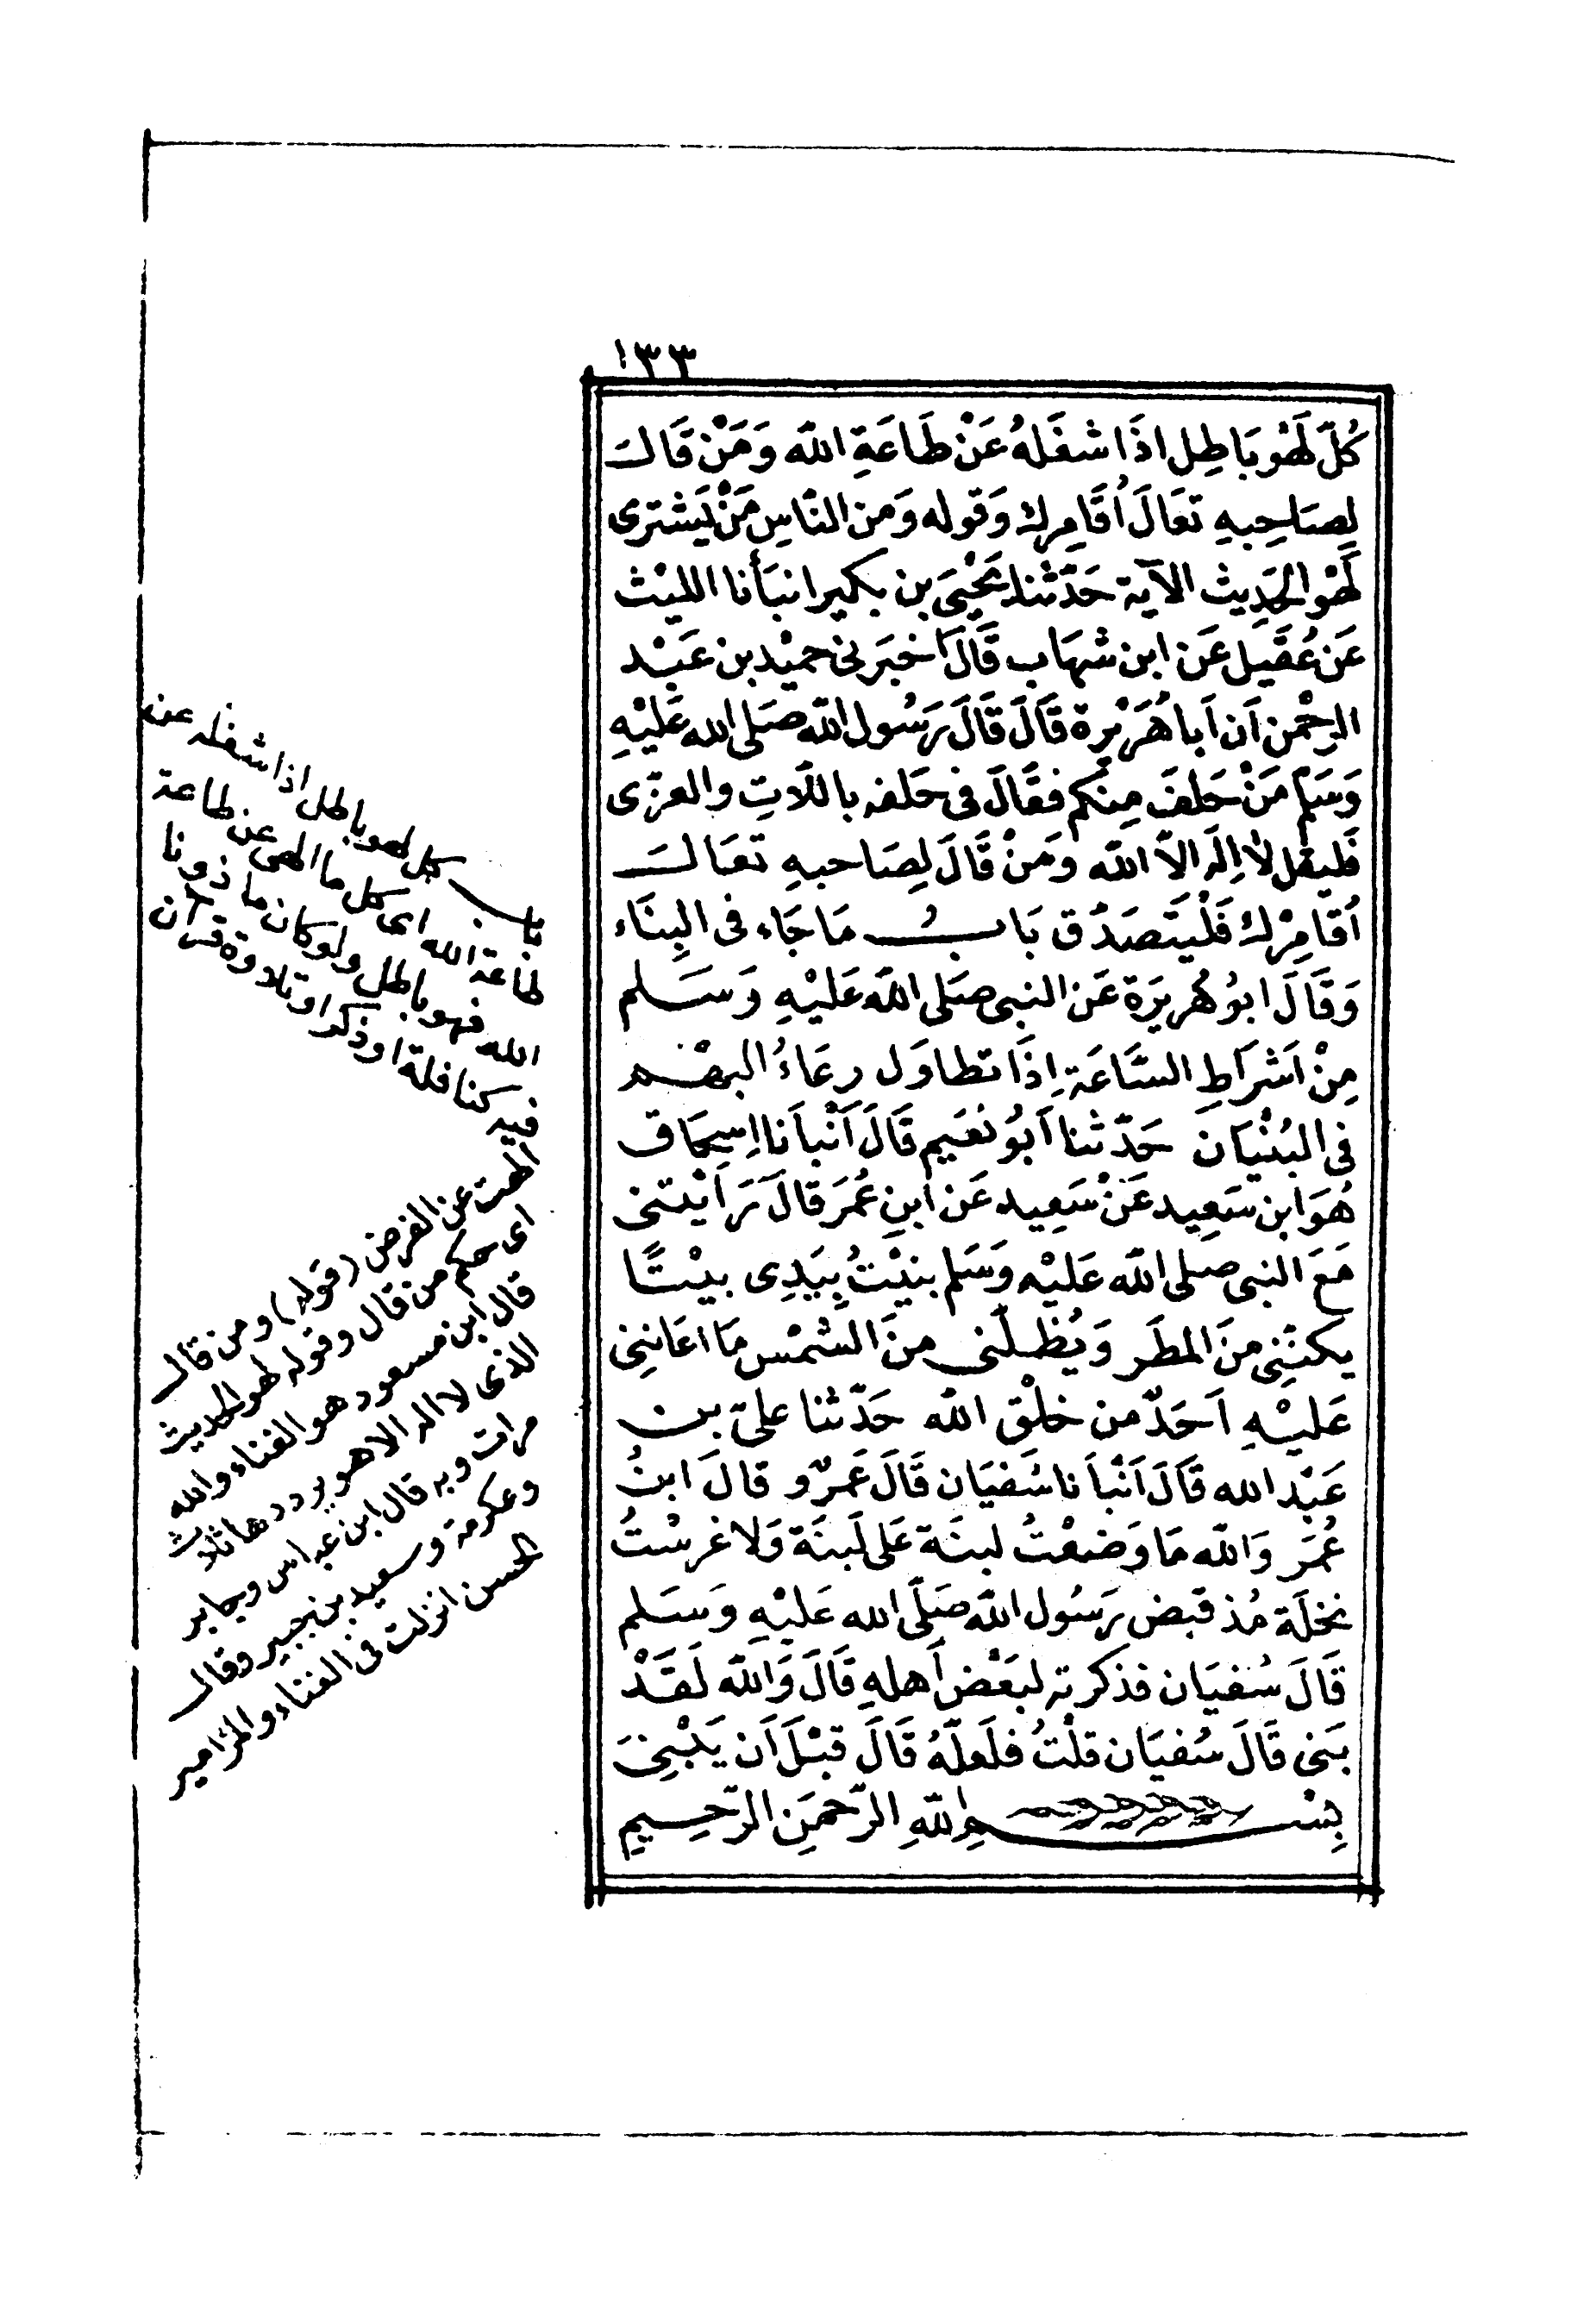 ١٣٣
كُلّ لَهْو بَاطِل اذَا شغَلهُ عَنْ طَاعَةِ الله وَمَنْ قَالَ
لِصَاحِبهِ تعَالَ أُقَامِرك وَقوله وَمن النّاسِ مَنْ يَشْترى
لَهْو الحَدِيث الآية حَدّثنا يَحْيَى بن بكير انبَأنا الليْث
عَن عُقَيل عَن ابن شهَاب قَالَ اخبَرنى حميْد بن عَبْد
الرحْمن اَن اَبا هُرَيْرة قَالَ قَالَ رَسُول الله صَلى الله عَليْهِ
وَسَلم مَنْ حَلفَ مِنكم فقَالَ فى حَلفه باللّاتِ والعزّى
فَليقل لاَ اِلَه الاّ الله وَمَنْ قَالَ لِصَاحبهِ تعَالَ
اُقامِرْك فَلْيَتَصَدّق بَابُ مَا جَاء فى البِنَاء
وَقَالَ ابوُ هُريرَة عَن النبى صَلى الله عَليْهِ وَسَلم
مِنْ اَشرَاطِ السَّاعَة اِذَا تطاوَل رعَاءُ البهْم
فى البُنْيَان حَدّثنا اَبوُ نعَيم قَالَ اَنْبَأنا اِسحَاق
هُوَ ابن سَعِيد عَنْ سَعِيد عَن ابنِ عُمَرَ قالَ رَاَيْتنى
مَعَ النبى صلى الله عَليْه وَسَلم بنيْتُ بِيَدِى بيْتًا
يكنّنِى منَ المطَر وَيُظلّنى منَ الشمْس مَا اعَاننِى
عَليْهِ اَحَدٌ من خلْق الله حَدّثنا علىّ بن
عَبْد الله قَالَ اَنْبَأنا سُفيَان قَالَ عَمرٌو قالَ ابنُ
عُمَر وَالله مَا وَضعْتُ لبنَة عَلى لَبنَة وَلا غرسْتُ
نخلَة مُذ قبض رَسُول الله صَلّى الله عَليْهِ وَسَلم
قَالَ سُفيَان فذكرته لبَعْض اَهلهِ قَالَ وَالله لَقَدْ
بَنى قَالَ سُفيَان قلْتُ فلَعلّهُ قَالَ قبْلَ اَن يَبْنِىَ
بِسْمِ اللهِ الرّحمَنِ الرّحِيمِ
باب كل لهو باطل اذا شغله عن
طاعة الله اى كل ما الهى عن طاعة
الله فهو باطل ولو كان ماذونا
فيه كنافلة او ذكر او تلاوة قرآن
الهت عن الفرض (قوله) ومن قال
اى حكم من قال وقوله لهو الحديث
قال ابن مسعود هو الغناء والله
الذى لا اله الا هو يرددها ثلاث
مرات وبه قال ابن عباس وجابر
وعكرمة وسعيد بن جبير وقال
الحسن انزلت فى الغناء والمزامير